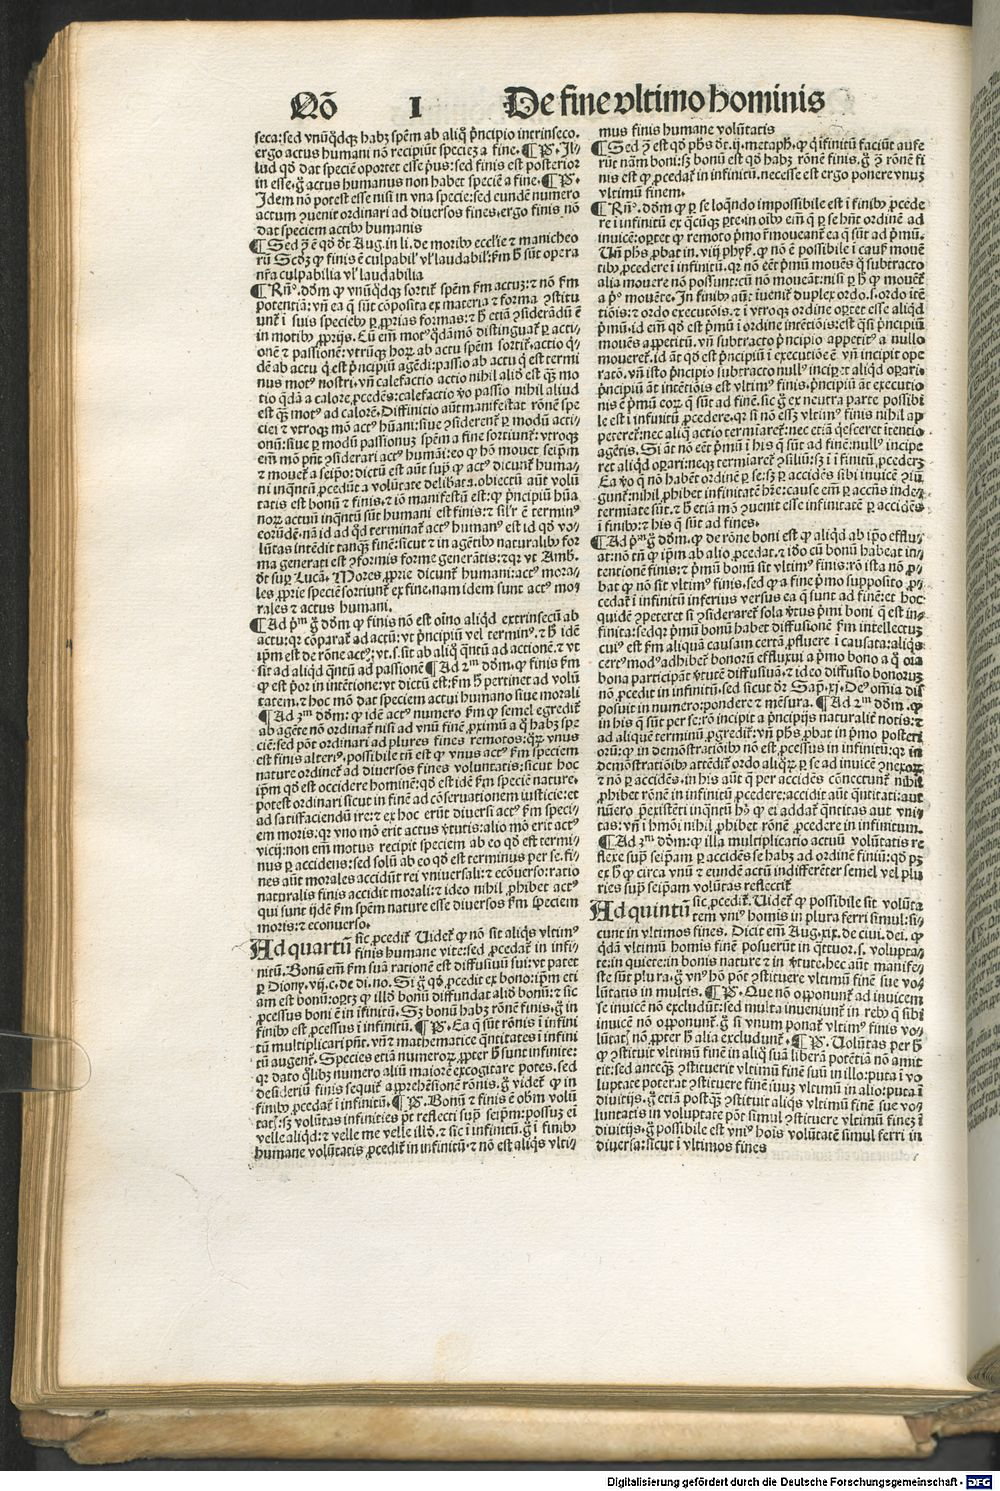 Qõ I De fine vltimo hominis
seca: sed vnũqdqꝫ habꝫ spẽm ab aliq̃ p̃ncipio intrinseco.
ergo actus humani nõ recipiũt specieꝫ a fine. ¶ P̃. Il⸗
lud qð dat speciẽ oportet esse p̃us: sed finis est posterior
in esse. g̃ actus humanus non habet speciẽ a fine. ¶ P̃.
Idem nõ potest esse nisi in vna specie: sed eundẽ numero
actum ꝯuenit ordinari ad diuersos fines. ergo finis nõ
dat speciem actibꝰ humanis
¶ Sed ꝯ̃ ẽ qð dt̃ Aug. in li. de moribꝰ eccl'ie ⁊ manicheo
rũ Scðꝫ ꝙ finis ẽ culpabil' vl' laudabil': fm̃ h̃ sũt opera
nr̃a culpabilia vl' laudabilia
¶ Rñ°. dõm ꝙ vnũqdqꝫ sortit̃ spẽm fm̃ actuꝫ: ⁊ nõ fm̃
potentiã: vñ ea q̃ sũt cõposita ex materia ⁊ forma ꝯstitu
unt̃ ĩ suis speciebꝰ ꝑ ꝓprias formas: ⁊ h̃ etiã ꝯsiderãdũ ẽ
in motibꝰ ꝓprijs. Cũ em̃ motꝰ q̃dãmõ distinguat̃ ꝑ acti⸗
onẽ ⁊ passionẽ: vtrũqꝫ horꝝ ab actu spẽm sortit̃. actio q̃⸗
dẽ ab actu q̃ est p̃ncipiũ agẽdi: passio ab actu q̃ est termi
nus motꝰ nostri. vñ calefactio actio nihil alið est qꝫ mo
tio q̃dã a calore ꝓcedẽs: calefactio v̾o passio nihil aliud
est qꝫ motꝰ ad calorẽ. Diffinitio aũt manifestat rõnẽ spe
ciei ⁊ vtroqꝫ mõ actꝰ hũani: siue ꝯsiderent̃ ꝑ modũ acti⸗
onũ: siue ꝑ modũ passionuꝫ spẽm a fine sortiunt̃: vtroqꝫ
em̃ mõ pñt ꝯsiderari actꝰ humãi: eo ꝙ hõ mouet seip̃m
⁊ mouet̃ a seip̃o: dictũ est aũt sup̃ ꝙ actꝰ dicunt̃ huma⸗
ni inq̃ntũ ꝓcedũt a volũtate delibata. obiectũ aũt volũ
tatis est bonũ ⁊ finis. ⁊ iõ manifestũ est: ꝙ p̃ncipiũ hũa
norꝝ actuũ inq̃ntũ sũt humani est finis: ⁊ sil'r ẽ terminꝰ
eorũdẽ. nã id ad qð terminat̃ actꝰ humanꝰ est id qð vo⸗
lũtas intẽdit tanqꝫ finẽ: sicut ⁊ in agẽtibꝰ naturalibꝰ for
ma generati est ꝯformis forme generãtis: ⁊ qꝛ vt Amb.
dt̃ sup̃ Lucã. Mores ꝓprie dicunt̃ humani: actꝰ mora⸗
les ꝓprie speciẽ sortiunt̃ ex fine. nam idem sunt actꝰ mo
rales ⁊ actus humani.
¶ Ad p̃ᵐ g̃ dõm ꝙ finis nõ est oĩno aliqð extrinsecũ ab
actu: qꝛ cõparat̃ ad actũ: vt p̃ncipiũ vel terminꝰ. ⁊ h̃ idẽ
ip̃m est de rõne actꝰ: vt. s. sit ab aliq̃ q̃ntũ ad actionẽ. ⁊ vt
sit ad aliqð q̃ntũ ad passionẽ ¶ Ad 2ᵐ dõm. ꝙ finis fm̃
ꝙ est p̃or in intẽtione: vt dictũ est: fm̃ h̃ pertinet ad volũ
tatem. ⁊ hoc mõ dat speciem actui humano siue morali
¶ Ad 3ᵐ dõm: ꝙ idẽ actꝰ numero fm̃ ꝙ semel egredit̃
ab agẽte nõ ordinat̃ nisi ad vnũ finẽ ꝓximũ a q̃ habꝫ spe
ciẽ: sed põt ordinari ad plures fines remotos: q̃rꝝ vnus
est finis alterꝰ. possibile tñ est ꝙ vnus actꝰ fm̃ speciem
nature ordinet̃ ad diuersos fines voluntatis: sicut hoc
ip̃m qð est occidere hominẽ: qð est idẽ fm̃ speciẽ nature.
potest ordinari sicut in finẽ ad cõseruationem iusticie: et
ad satisfaciendũ ire: ⁊ ex hoc erũt diuersi actꝰ fm̃ speci⸗
em moris: qꝛ vno mõ erit actus v̾tutis: alio mõ erit actꝰ
vicij: non em̃ motus recipit speciem ab eo qð est termi⸗
nus ꝑ accidens: sed solũ ab eo qð est terminus per se. fi⸗
nes aũt morales accidũt rei vniuersali: ⁊ ecõuerso: ratio
naturalis finis accidit morali: ⁊ ideo nihil ꝓhibet actꝰ
qui sunt ijdẽ fm̃ spẽm nature esse diuersos fm̃ speciem
moris: ⁊ econuerso.
Ad quartũ sic ꝓcedit̃ Uidet̃ ꝙ nõ sit aliqs vltimꝰ
finis humane vite: sed ꝓcedat̃ in infi⸗
nitũ. Bonũ em̃ fm̃ suã rationẽ est diffusiuũ sui: vt patet
ꝑ Diony. vij. c. de di. no. Si g̃ qð ꝓcedit ex bono: ip̃m eti
am est bonũ: oꝑtꝫ ꝙ illð bonũ diffundat alið bonũ: ⁊ sic
ꝓcessus boni ẽ in ĩfinitũ. Sꝫ bonũ habꝫ rõnẽ finis. g̃ in
finibꝰ est ꝓcessus ĩ infinitũ. ¶ P̃. Ea q̃ sũt rõnis ĩ infini
tũ multiplicari pñt. vñ ⁊ mathematice q̃ntitates ĩ infini
tũ augent̃. Species etiã numeroꝝ ꝓpter h̃ sunt infinite:
qꝛ dato q̃libꝫ numero aliũ maiorẽ excogitare potes. sed
desideriũ finis sequit̃ apꝓehẽsionẽ rõnis. g̃ videt̃ ꝙ in
finibꝰ ꝓcedat̃ ĩ infinitũ. ¶ P̃. Bonũ ⁊ finis ẽ obm̃ volũ
tatꝭ: sꝫ volũtas infinities p̃t reflecti sup̃ seip̃m: possuꝫ ei
velle aliqð: ⁊ velle me velle illð. ⁊ sic ĩ infinitũ. g̃ ĩ finibꝰ
humane volũtatis ꝓcedit̃ in infinitũ. ⁊ nõ est aliqs vlti⸗
mus finis humane volũtatis
¶ Sed ꝯ̃ est qð ph̃s dt̃. ij. metaph̃. ꝙ q ĩfinitũ faciũt aufe
rũt nãm boni: sꝫ bonũ est qð habꝫ rõnẽ finis. g̃ ꝯ̃ rõnẽ fi
nis est ꝙ ꝓcedat̃ in infinitũ. necesse est ergo ponere vnuꝫ
vltimũ finem.
¶ Rñ°. dõm. ꝙ ꝑ se loq̃ndo impossibile est ĩ finibꝰ ꝓcede
re ĩ infinitũ ex q̃cũqꝫ ꝑte. in oĩbꝰ em̃ q̃ ꝑ se hñt ordinẽ ad
inuicẽ: oꝑtet ꝙ remoto p̃mo r̃moueant̃ ea q̃ sũt ad p̃mũ.
Uñ ph̃s ꝓbat in. viij phyſ. ꝙ nõ ẽ possibile ĩ causꝭ mouẽ
tibꝰ ꝓcedere ĩ infinitũ. qꝛ nõ eẽt p̃mũ mouẽs q̃ subtracto
alia mouere nõ possunt: cũ nõ moueãt: nisi ꝑ h̃ ꝙ mouẽt̃
a p̃° mouẽte. In finibꝰ aũt: ĩuenit̃ duplex ordo. s. ordo itẽ
tiõis: ⁊ ordo executõis. ⁊ ĩ vtroqꝫ ordine oꝑtet esse aliqð
p̃mũ. id em̃ qð est p̃mũ ĩ ordine intẽtiõis: est q̃si p̃ncipiũ
mouẽs appetitũ. vñ subtracto p̃ncipio appetitꝰ a nullo
moueret̃. id ãt qð est p̃ncipiũ ĩ executiõe ẽ vñ incipit ope
ratõ. vñ isto p̃ncipio subtracto nullꝰ incip̃et aliqð oꝑari.
p̃ncipiũ ãt intẽtiõis est vltimꝰ finis. p̃ncipiũ ãt executio
nis ẽ p̃mũ eorꝝ q̃ sũt ad finẽ. sic g̃ ex neutra parte possibi
le est ĩ infinitũ ꝓcedere. qꝛ si nõ esset vltimꝰ finis nihil ap
peteret̃: nec aliq̃ actio termiaret̃: nec etiã q̃esceret itẽtio
agẽtis. Si ãt nõ eẽt p̃mũ ĩ his q̃ sũt ad finẽ: nullꝰ incipe
ret aliqð oꝑari: neqꝫ termiaret̃ ꝯsiliũ: sꝫ ĩ ĩfinitũ ꝓcederꝫ
Ea v̾o q̃ nõ habẽt ordinẽ ꝑ se: sꝫ ꝑ accidẽs sibi inuicẽ ꝯiũ
gunt̃: nihil ꝓhibet infinitatẽ hr̃e: cause em̃ ꝑ accñs inde⸗
termiate sũt. ⁊ h̃ etiã mõ ꝯuenit esse infinitatẽ ꝑ accidẽs
ĩ finibꝰ: ⁊ his q̃ sũt ad fines.
¶ Ad p̃ᵐ g̃ dõm. ꝙ de rõne boni est ꝙ aliqð ab ip̃o efflu⸗
at: nõ tñ ꝙ ip̃m ab alio ꝓcedat. ⁊ idõ cũ bonũ habeat in⸗
tentionẽ finis: ⁊ p̃mũ bonũ sit vltimꝰ finis: rõ ista nõ ꝓ⸗
bat ꝙ nõ sit vltimꝰ finis. sed ꝙ a fine p̃mo supposito ꝓ⸗
cedat̃ ĩ infinitũ inferius versus ea q̃ sunt ad finẽ: et hoc
quidẽ ꝯpeteret si ꝯsideraret̃ sola v̾tus p̃mi boni q̃ est in⸗
finita: sedqꝛ p̃mũ bonũ habet diffusionẽ fm̃ intellectuꝫ
cuiꝰ est fm̃ aliquã causam certã ꝓfluere ĩ causata: aliqs
certꝰ modꝰ adhibet̃ bonorũ effluxui a p̃mo bono a q̃ oĩa
bona participãt v̾tutẽ diffusiuã. ⁊ ideo diffusio bonoruꝫ
nõ ꝓcedit in infinitũ. sed sicut dr̃ Sap̃. xj. Deꝰ om̃ia dis
posuit in numero: pondere ⁊ mẽsura. ¶ Ad 2ᵐ dõm. ꝙ
in his q̃ sũt per se: rõ incipit a p̃ncipijs naturalit̃ notis: ⁊
ad aliquẽ terminũ ꝓgredit̃: vñ ph̃s ꝓbat in p̃mo posteri
orũ: ꝙ in demõstratiõibꝰ nõ est ꝓcessus in infinitũ: qꝛ in
demõstratiõibꝰ attẽdit̃ ordo aliqꝝ ꝑ se ad inuicẽ ꝯnexoꝝ
⁊ nõ ꝑ accidẽs. in his aũt q̃ per accidẽs cõnectunt̃ nihil
ꝓhibet rõnẽ in infinitũ ꝓcedere: accidit aũt q̃ntitati: aut
nũero p̃existẽti inq̃ntũ hꝰ ꝙ ei addat̃ q̃ntitas aut vni⸗
tas: vñ ĩ hmõi nihil ꝓhibet rõnẽ ꝓcedere in infinitum.
¶ Ad 3ᵐ dõm: ꝙ illa multiplicatio actuũ volũtatis re
flexe sup̃ seip̃am ꝑ accidẽs se habꝫ ad ordinẽ finiũ: qð pꝫ
ex h̃ ꝙ circa vnũ ⁊ eundẽ actũ indifferẽter semel vel plu
ries sup̃ seip̃am volũtas reflectit̃
Ad quintũ sic ꝓcedit̃. Uidet̃ ꝙ possibile sit volũta
tem vniꝰ homis in plura ferri simul: si⸗
cunt in vltimos fines. Dicit em̃ Aug. xix. de ciui. dei. ꝙ
q̃dã vltimũ homis finẽ posuerũt in q̃ttuor. s. volupta⸗
te: in quiete: in bonis nature ⁊ in v̾tute. hec aũt manife⸗
ste sũt plura. g̃ vnꝰ hõ põt ꝯstituere vltimũ finẽ sue vo⸗
lũtatis in multis. ¶ P̃. Que nõ opponunt̃ ad inuicem
se inuicẽ nõ excludũt: sed multa inueniunt̃ in rebꝰ q̃ sibi
inuicẽ nõ opponunt̃. g̃ si vnum ponat̃ vltimꝰ finis vo⸗
lũtatꝭ nõ ꝓpter h̃ alia excludunt̃. ¶ P̃. Uolũtas per h̃
ꝙ ꝯstituit vltimũ finẽ in aliq̃ suã liberã potẽtiã nõ amit
tit: sed anteqꝫ ꝯstituerit vltimũ finẽ suũ in illo: puta ĩ vo
luptate poterat ꝯstituere finẽ suuꝫ vltimũ in alio: puta ĩ
diuitijs. g̃ etiã postqꝫ ꝯstituit aliqs vltimũ finẽ sue vo⸗
luntatis in voluptate põt simul ꝯstituere vltimũ fineꝫ ĩ
diuitijs. g̃ possibile est vniꝰ hoĩs volũtatẽ simul ferri in
diuersa: sicut ĩ vltimos fines
Digitalisierung gefördert durch die Deutsche Forschungsgemeinschaft - DFG